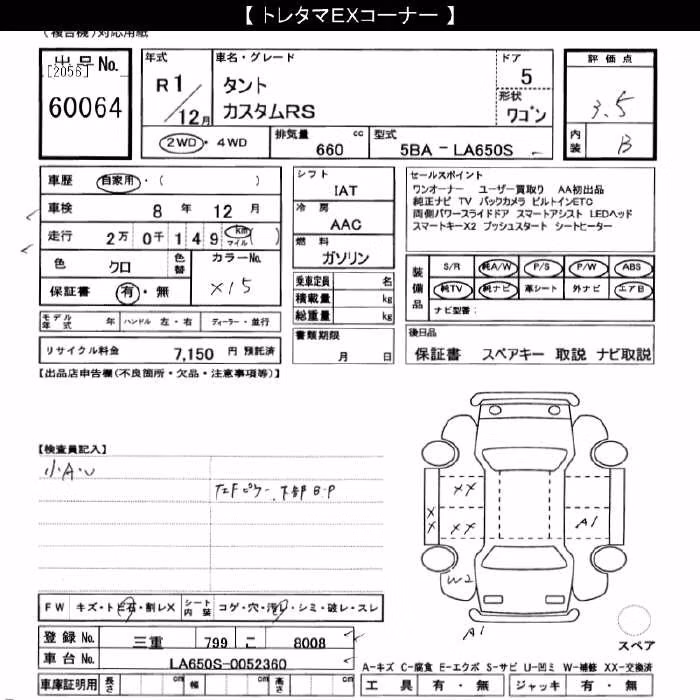 【 トレタマEXコーナー 】
(複合機)対応用紙
出品No.
[2056]
60064
年式
R1/12月
車名・グレード
タント
カスタムRS
ドア
5
形状
ワゴン
2WD・4WD
排気量 660 cc
型式 5BA－LA650S
評価点
3.5
内装 B
車歴 自家用・( )
車検 8年 12月
走行 2万 0千 149 km マイル ( )
色 クロ 色替
カラーNo.
X15
保証書 有・無
モデル年式 年 ハンドル 左・右 ディーラー・並行
リサイクル料金 7,150 円 預託済
シフト
IAT
冷房
AAC
燃料
ガソリン
乗車定員 名
積載量 kg
総重量 kg
書類期限
月 日
セールスポイント
ワンオーナー ユーザー買取り AA初出品
純正ナビ TV バックカメラ ビルトインETC
両側パワースライドドア スマートアシスト LEDヘッド
スマートキーX2 プッシュスタート シートヒーター
装備品
S/R 純A/W P/S P/W ABS
純TV 純ナビ 革シート 外ナビ エアB
ナビ型番:
後日品
保証書 スペアキー 取説 ナビ取説
【出品店申告欄(不良箇所・欠品・注意事項等)】
【検査員記入】
小A.U
左Fピラー、下部B.P
XX
XX
XX
A1
W2
A1
スペア
FW キズ・トビ石・割レX シート内装 コゲ・穴・汚レ・シミ・破レ・スレ
登録No. 三重 799 こ 8008
車台No. LA650S-0052360
車庫証明用 長さ cm 幅 cm 高さ cm
A-キズ C-腐食 E-エクボ S-サビ U-凹ミ W-補修 XX-交換済
工具 有・無 ジャッキ 有・無